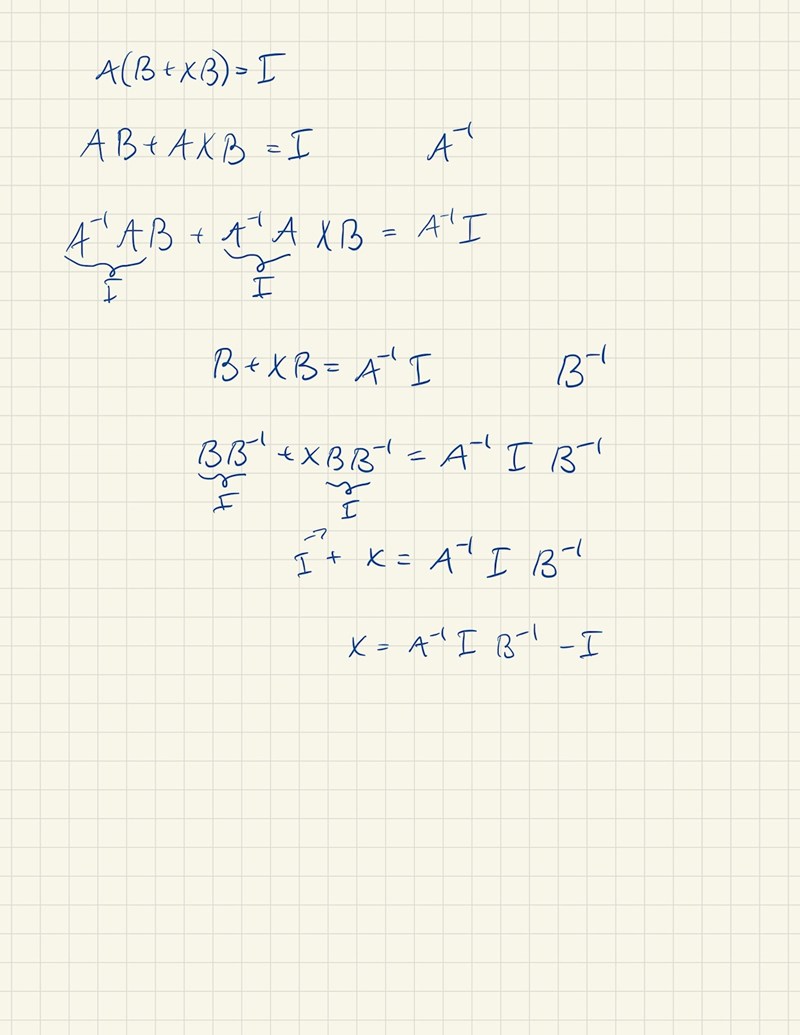 A(B+XB)=I
AB+AXB=I A⁻¹
A⁻¹AB + A⁻¹A XB = A⁻¹I
I I
B+XB= A⁻¹ I B⁻¹
BB⁻¹ + XBB⁻¹ = A⁻¹ I B⁻¹
I I
I + X = A⁻¹ I B⁻¹
X = A⁻¹ I B⁻¹ - I